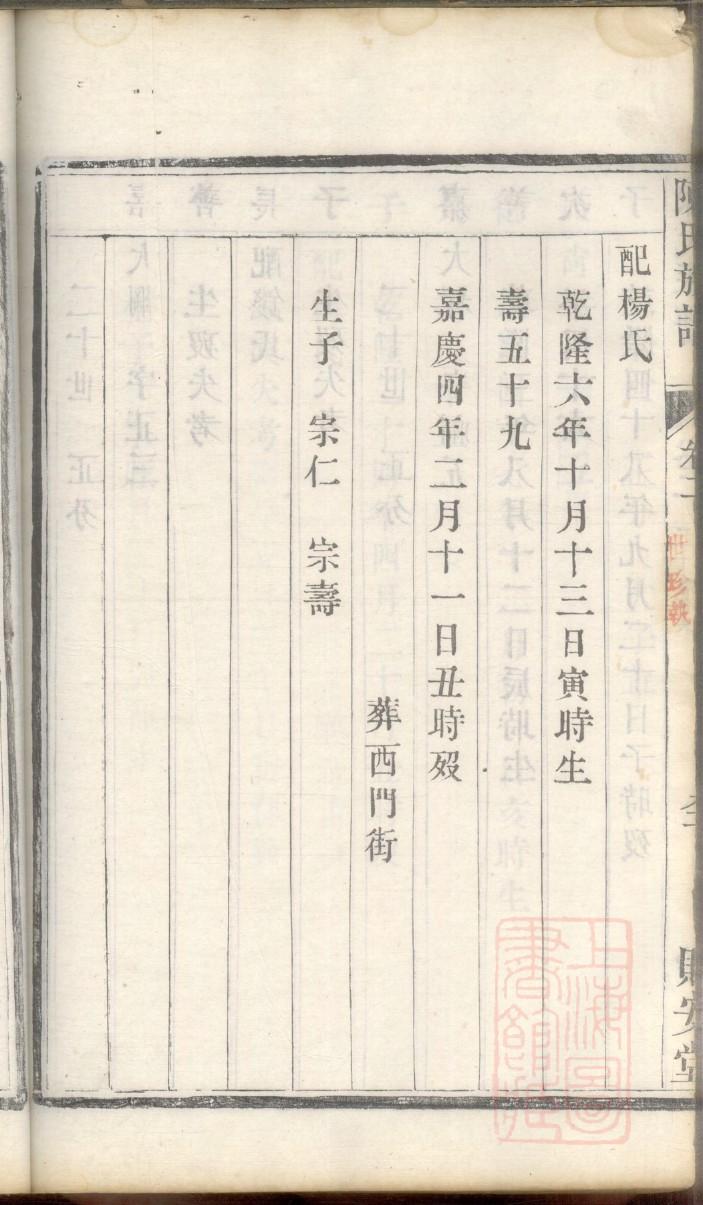 陳氏族譜
卷二
世珍執
貽安堂
配楊氏
乾隆六年十月十三日寅時生
壽五十九
嘉慶四年二月十一日丑時歿
葬西門街
生子 宗仁 宗壽
上海圖書館藏